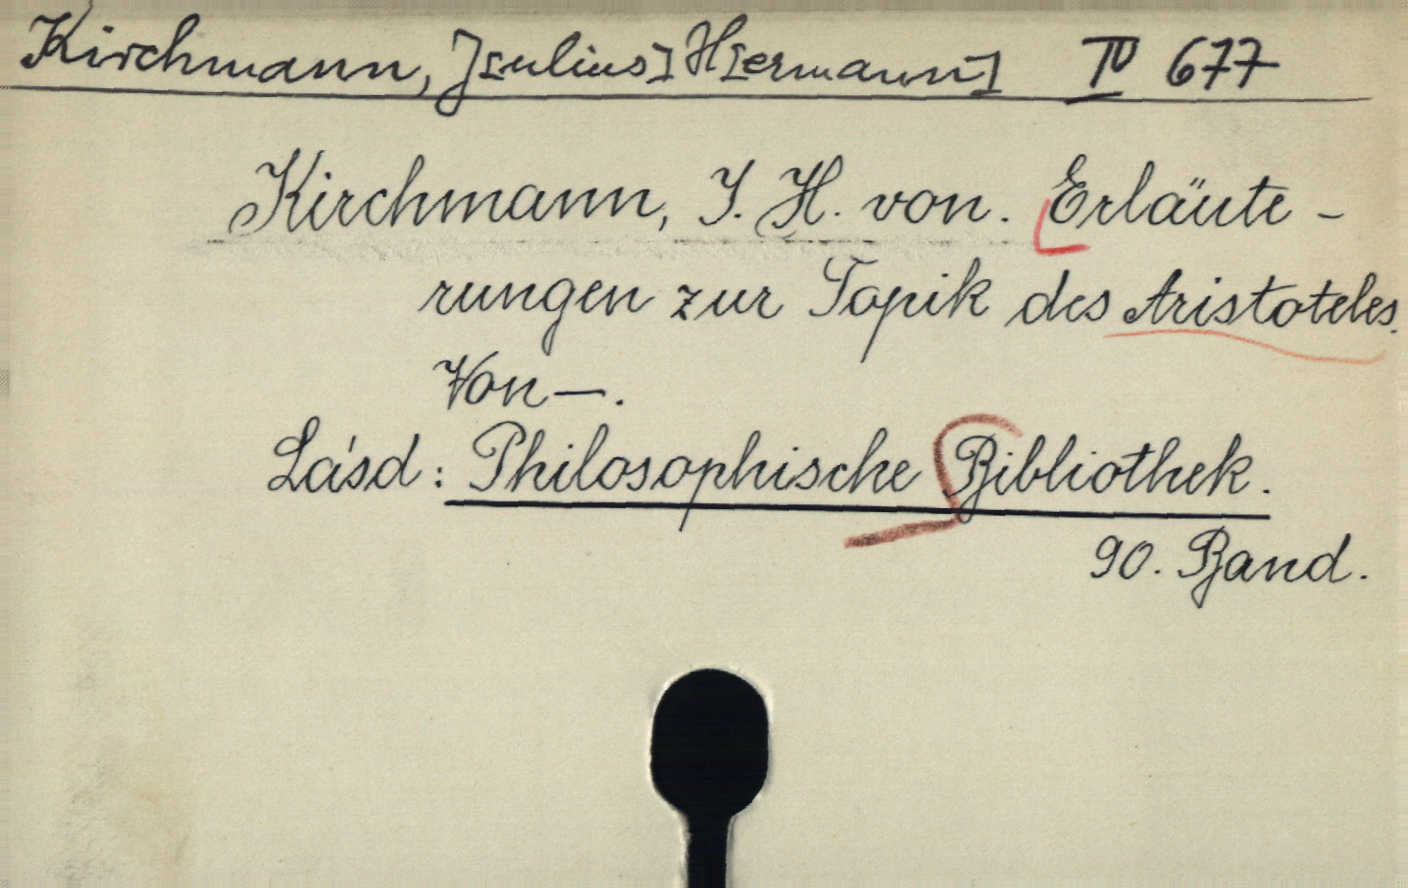 Kirchmann, J[ulius] H[ermann] IV 677
Kirchmann, J. H. von. Erläute-
rungen zur Topik des Aristoteles.
Von —.
Lásd: Philosophische Bibliothek.
90. Band.